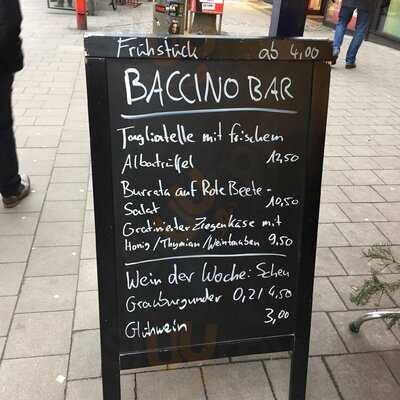 Frühstück ab 4,00
BACCINO BAR
Tagliatelle mit frischem
Albatrüffel 12,50
Burrata auf Rote Beete-
Salat 10,50
Gratinierter Ziegenkäse mit
Honig/Thymian/Weintrauben 9,50
Wein der Woche: Scheu
Grauburgunder 0,2l 4,50
Glühwein 3,00